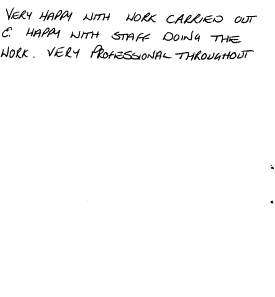 VERY HAPPY WITH WORK CARRIED OUT
& HAPPY WITH STAFF DOING THE
WORK. VERY PROFESSIONAL THROUGHOUT